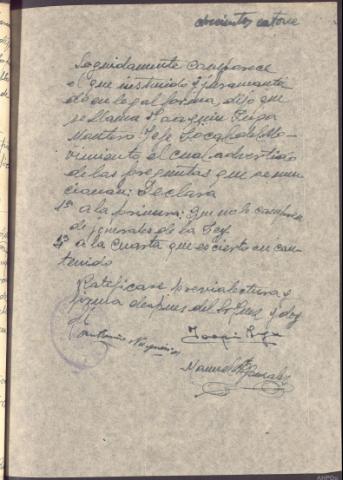 doscientos catorce
Seguidamente comparece
el que instruido y juramenta
do en legal forma, dijo que
se llama D. Joaquin
Montero Jefe Local del Mo-
vimiento, el cual advertido
de las preguntas que se enun
cian: Declara
1ª a la primera: Que no le comprenden
generales de la Ley.
4ª a la cuarta que es cierto su con-
tenido
Ratificase previa lectura y
firma despues del Sr Juez y doy
fé
Antonio
Joaqn
Manuel González
AHPOu